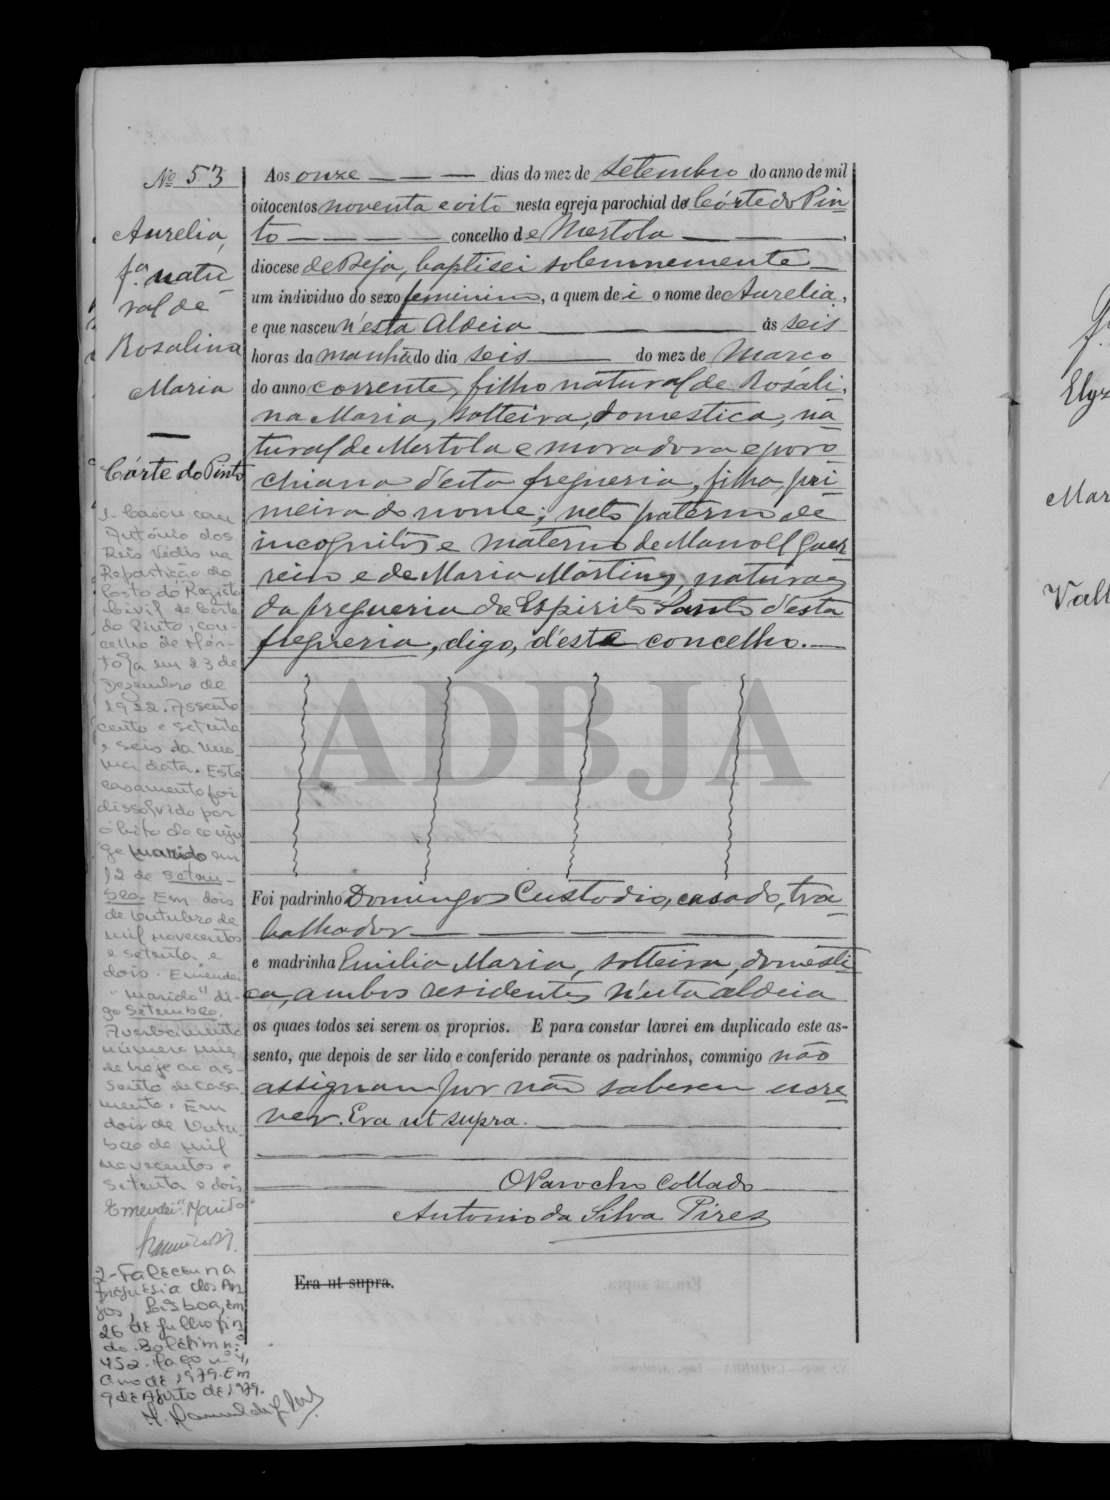 Nº 53
Aurelia,
fª natu-
ral de
Rosalina
Maria
Córte do Pinto
1- Casou com
António dos
Reis
Repartição do
Posto do Registo
Civil de Córte
do Pinto, con-
celho de Mér-
tola em 23 de
Dezembro de
1922. Assento
cento e setenta
e seis da mes-
ma data. Este
casamento foi
dissolvido por
óbito do conju-
ge marido em
12 de setem-
bro. Em dois
de Outubro de
mil novecentos
e setenta e
dois. Emendei
"marido" di-
go Setembro.
Averbamento
número um
de hoje ao as-
sento de casa-
mento. Em
dois de Outu-
bro de mil
novecentos e
setenta e dois
Emendei: "Marido"
2- Faleceu na
freguesia dos An-
jos, Lisboa, em
26 de Julho fin-
do. Boletim nº
452. Maço nº 4,
ano de 1979. Em
9 de Agosto de 1979.
Aos onze dias do mez de Setembro do anno de mil
oitocentos noventa e oito nesta egreja parochial de Córte do Pin-
to concelho de Mertola,
diocese de Beja, baptisei solemnemente
um individuo do sexo feminino, a quem dei o nome de Aurelia,
e que nasceu n'esta Aldeia ás seis
horas da manhã do dia seis do mez de Março
do anno corrente, filho natural de Rosali-
na Maria, solteira, domestica, na-
tural de Mertola e moradora e paro-
chiana d'esta freguesia, filha pri-
meira do nome; neto paterno de
incognitos e materno de Manoel Guer-
reiro e de Maria Martins, naturaes
da freguesia do Espirito Santo d'esta
freguesia, digo, d'este concelho.
ADBJA
Foi padrinho Domingos Custodio, casado, tra-
balhador
e madrinha Emilia Maria, solteira, domesti-
ca, ambos residentes n'esta aldeia
os quaes todos sei serem os proprios. E para constar lavrei em duplicado este as-
sento, que depois de ser lido e conferido perante os padrinhos, commigo não
assignam por não saberem escre-
ver. Era ut supra.
O Parocho Collado
Antonio da Silva Pires
Era ut supra.
Elyz
Mar